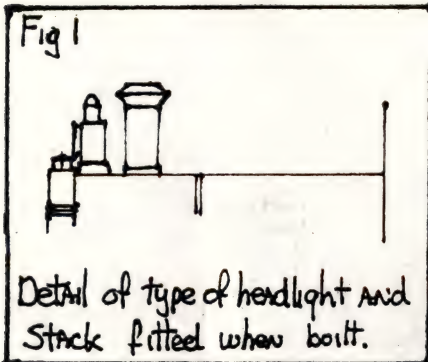 Fig 1
Detail of type of headlight and
Stack fitted when built.